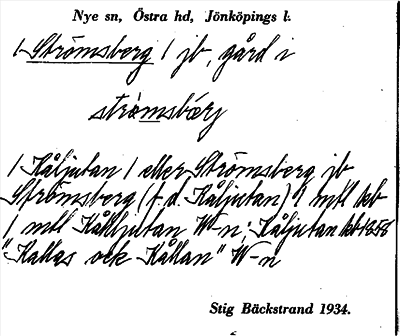 Nye sn, Östra hd, Jönköpings l.
1 Strömsberg 1 jb, gård i
strömsbærj
1 Kåljutan 1 eller Strömsberg jb
Strömsberg (f.d. Kåljutan) 1 mtl kb
1 mtl Kåhljutan W-n; Kåljutan kb 1858
"Kallas ock Kållan" W-n
Stig Bäckstrand 1934.